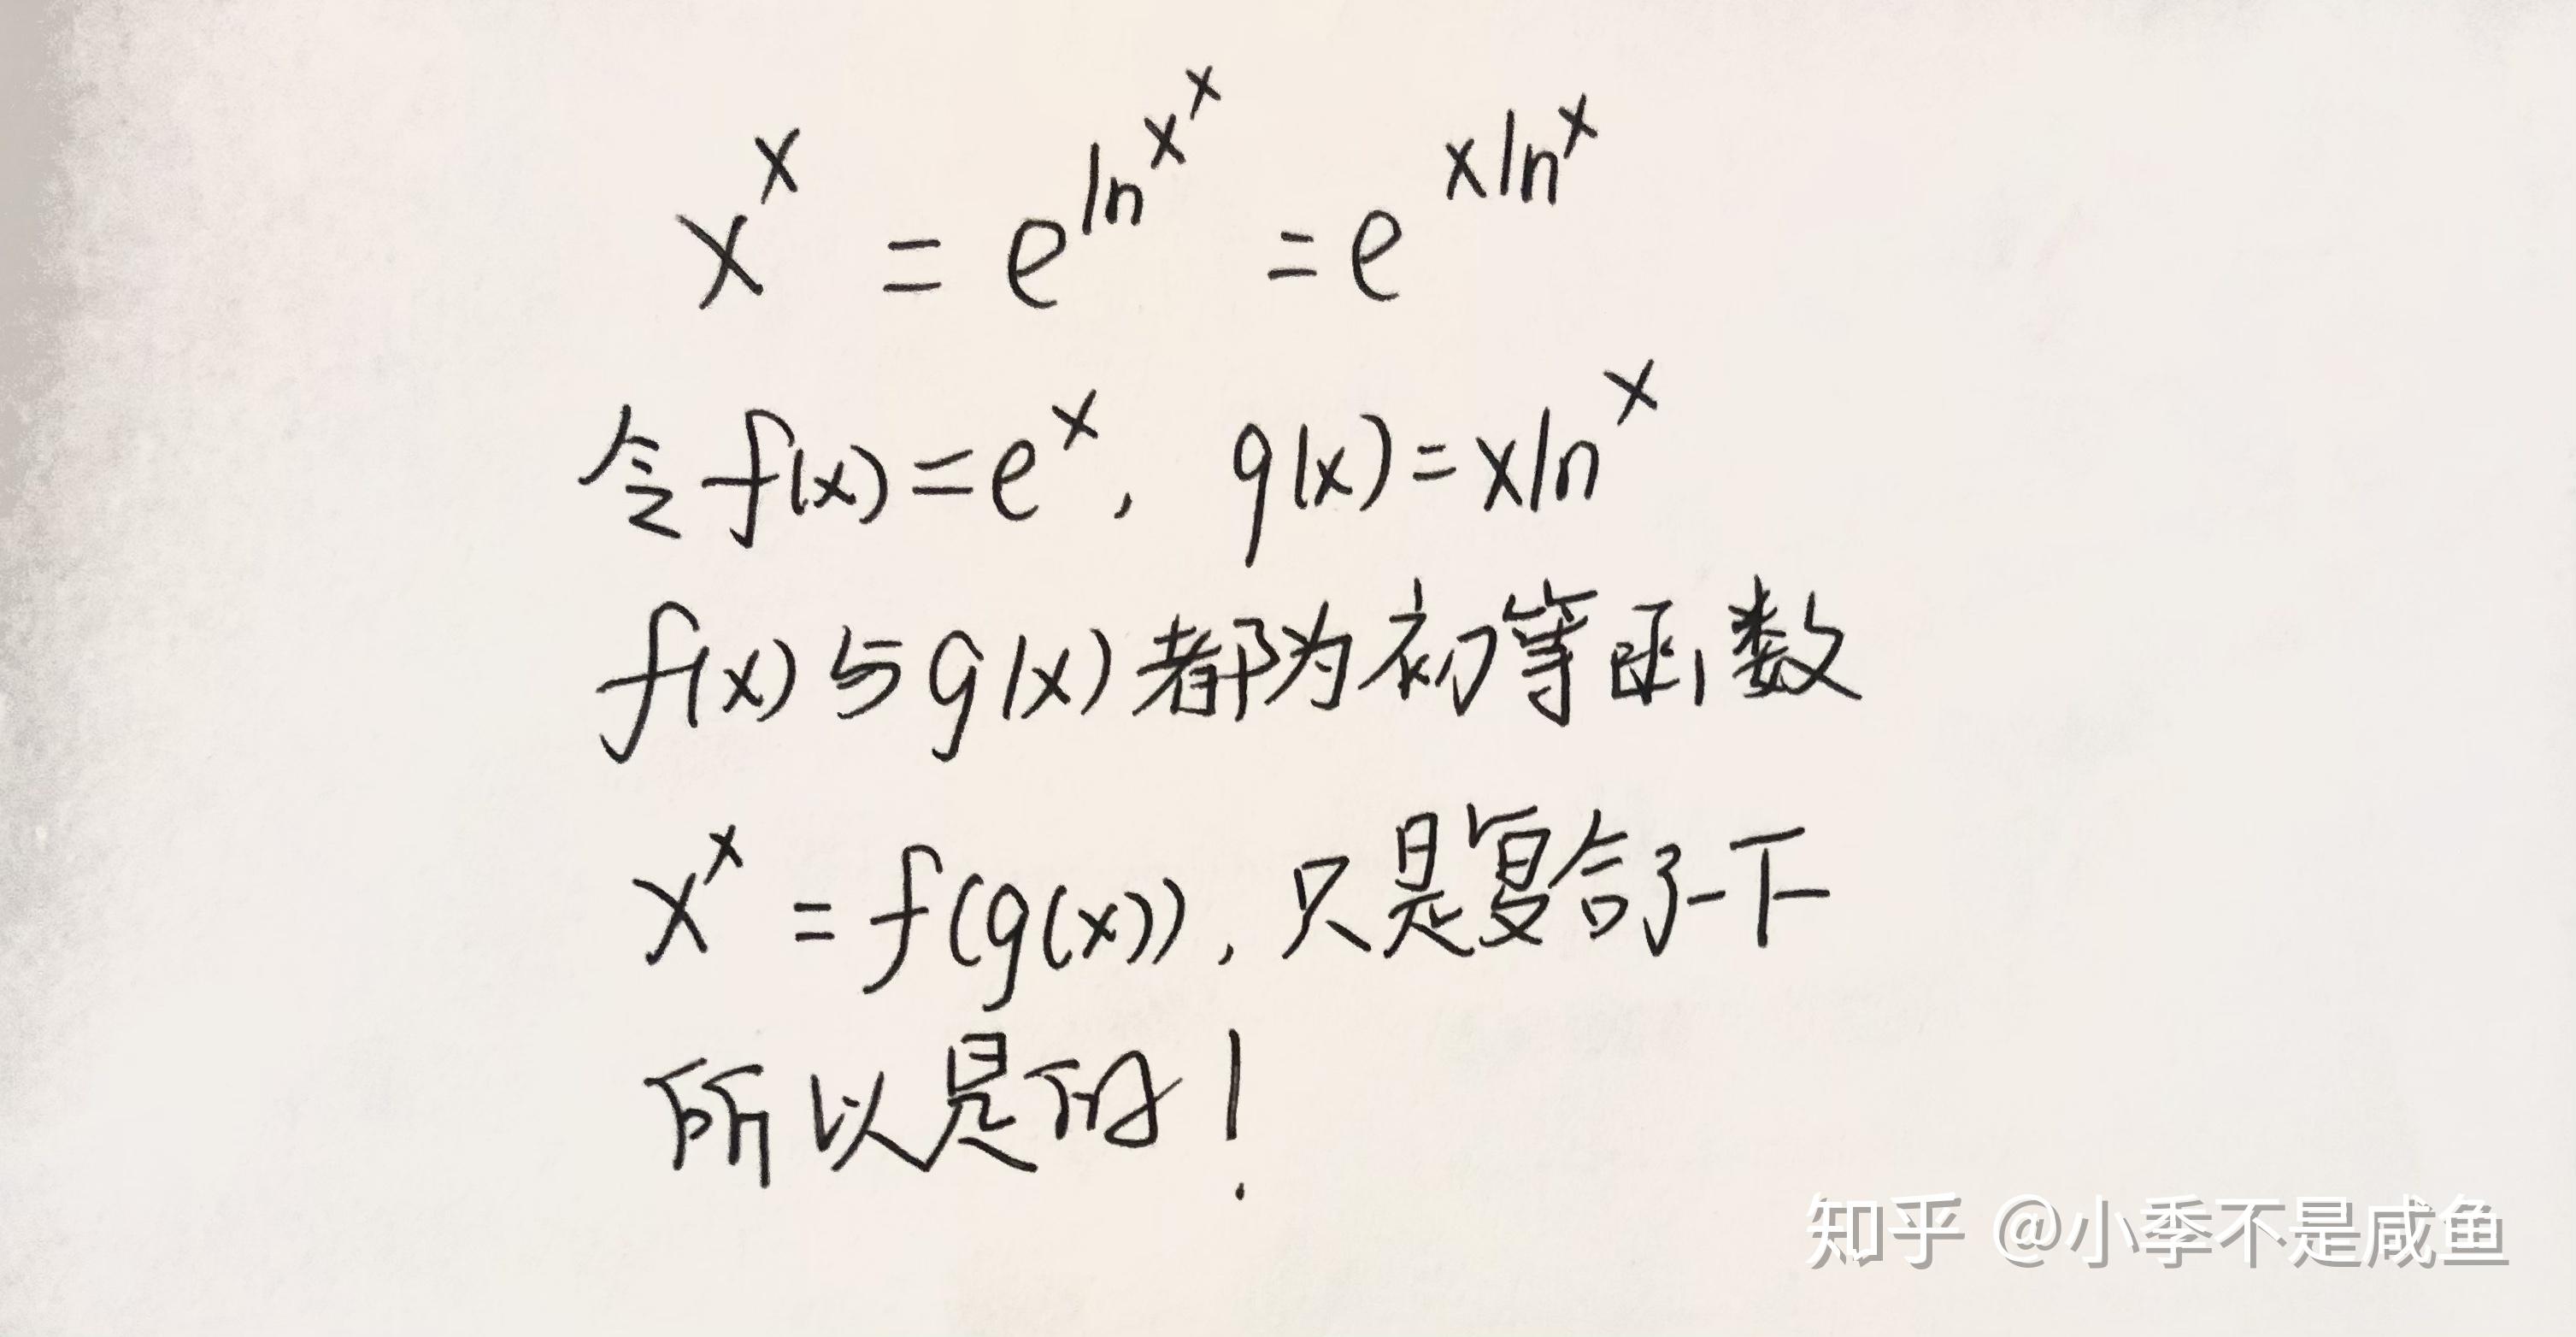 x^x = e^{ln^{x^x}} = e^{xln^x}
令f(x)=e^x, g(x)=xln^x
f(x)与g(x)都为初等函数
x^x = f(g(x)), 只是复合了一下
所以是的!
知乎 @小季不是咸鱼